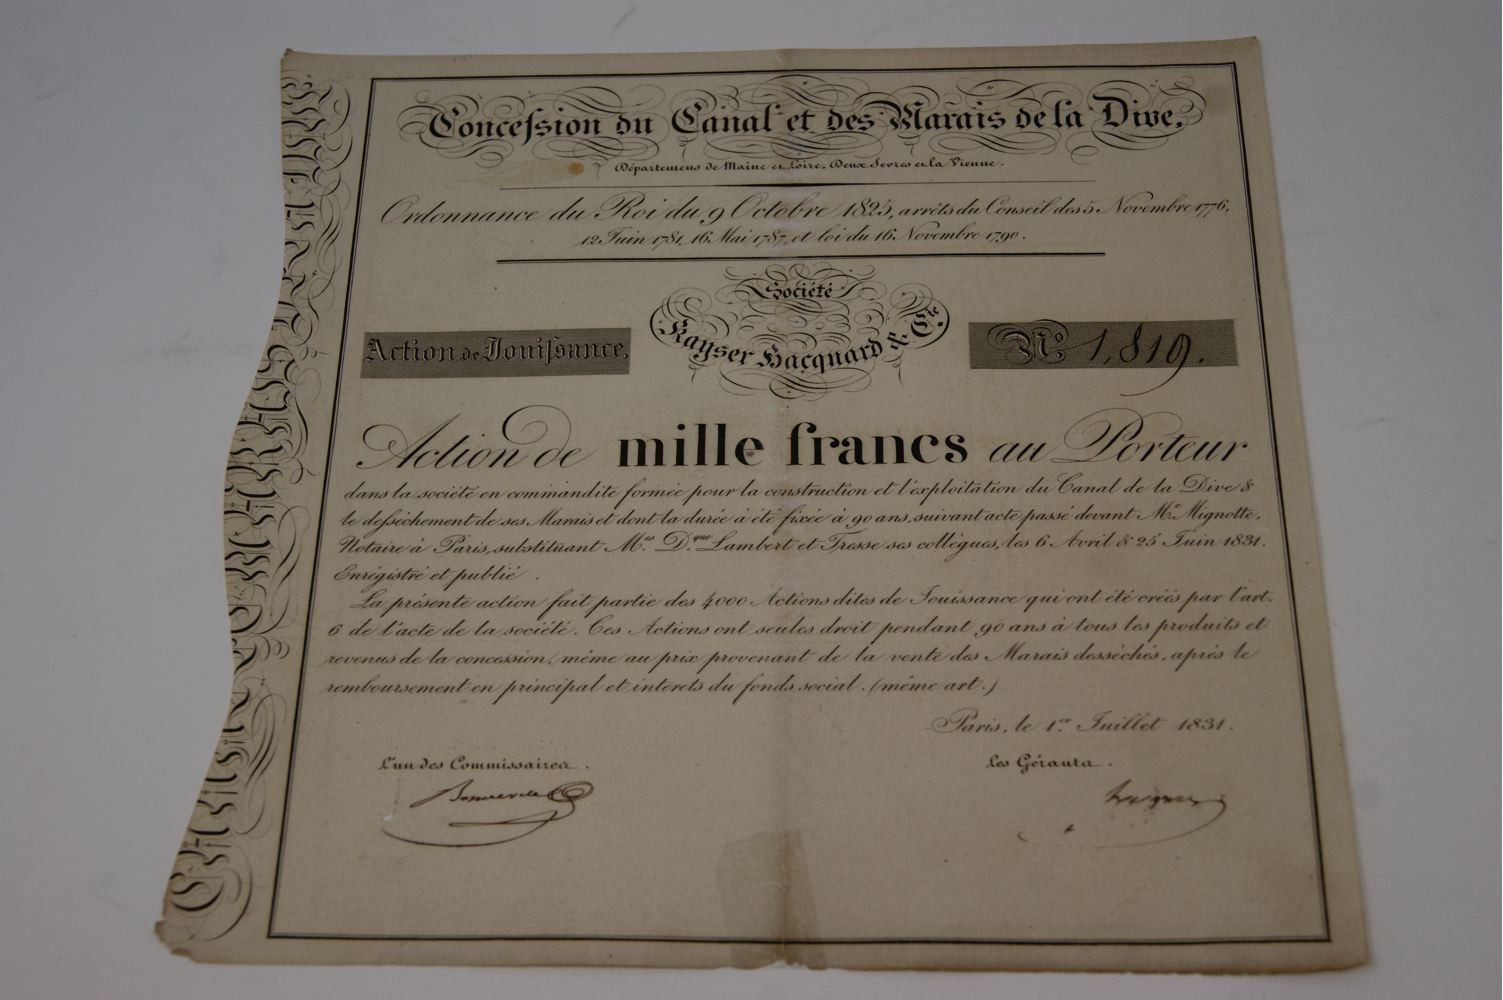 Concession du Canal et des Marais de la Dive,
Départemens de Maine et Loire, Deux Sevres et la Vienne.
Ordonnance du Roi du 9 Octobre 1825, arrêts du Conseil des 5 Novembre 1776,
12 Juin 1781, 16 Mai 1787, et loi du 16 Novembre 1790.
Société
Kayser Hacquard & Cie.
Action de Jouissance,
No. 1,819.
Action de mille francs au Porteur
dans la société en commandite formée pour la construction et l'exploitation du Canal de la Dive &
le desséchement de ses Marais et dont la durée à été fixée à 90 ans, suivant acte passé devant Me. Mignotte,
Notaire à Paris, substituant Mes. Dque Lambert et Tresse ses collégues, les 6 Avril & 25 Juin 1831.
Enrégistré et publié.
La présente action fait partie des 4000 Actions dites de Jouissance qui ont été créés par l'art.
6 de l'acte de la société. Ces Actions ont seules droit pendant 90 ans à tous les produits et
revenus de la concession, même au prix provenant de la vente des Marais desséchés, après le
remboursement en principal et interets du fonds social. (même art.)
Paris, le 1er Juillet 1831.
L'un des Commissaires.
Les Gérants.